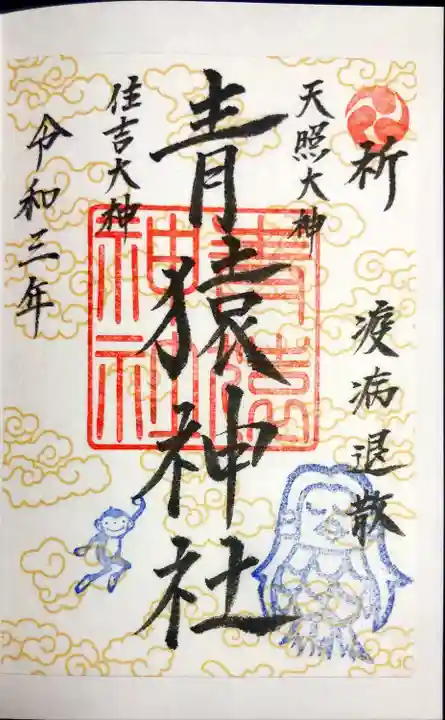 祈
疫病退散
天照大神
青猿神社
青猿神社
住吉大神
令和三年